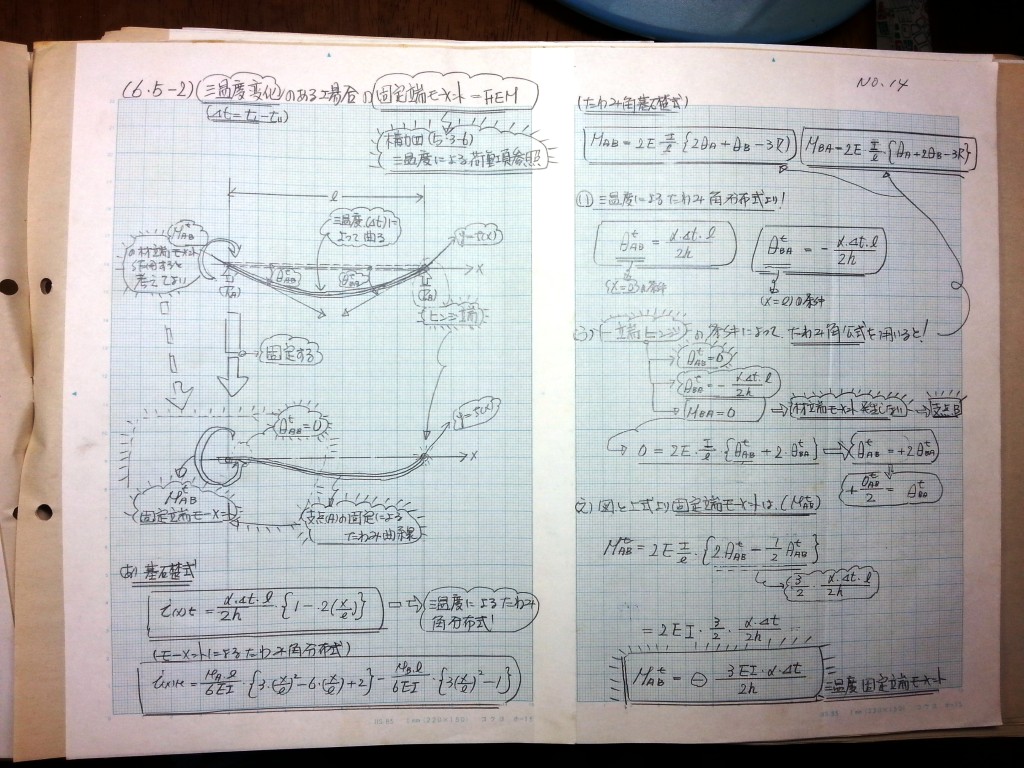 (6.5-2) 温度変化のある場合の固定端モーメント=FEM
(Δt=t₂-t₁)
構力四(5.3-6)
温度による荷重項参照
l
温度(Δt)に
よって曲る
y=t(x)
M_AB^t
の材端モーメント
が作用すると
考えてない
θ_AB^t
θ_BA^t
x
(R_A)
(ヒンジ端)
固定する
θ_AB^t=0
x
M_AB^t
固定端モーメント
支点(A)の固定による
たわみ曲線
(あ) 基礎式
i(x)t = α·Δt·l/2h · {1-2(x/l)} ⇨ 温度によるたわみ
角分布式!
(モーメントによるたわみ角分布式)
i(x)M = M_A·l/6EI · {3·(x/l)²-6·(x/l)+2} - M_B·l/6EI · {3(x/l)²-1}
NO.14
(たわみ角基礎式)
M_AB=2E·I/l·{2θ_A+θ_B-3R}
M_BA=2E·I/l·{θ_A+2θ_B-3R}
(い) 温度によるたわみ角分布式より!
θ_AB^t = α·Δt·l/2h
θ_BA^t = -α·Δt·l/2h
(x=0)の条件
(x=l)の条件
(う) 一端ヒンジの条件によって、たわみ角公式を用いると!
θ_AB^t=0
θ_BA^t=-α·Δt·l/2h
M_BA=0 ⇨ 材端モーメント発生しない → 支点B
0=2E·I/l·{θ_AB^t+2·θ_BA^t}
θ_AB^t=+2θ_BA^t
+θ_AB^t/2 = θ_BA^t
(え) 図と上式より固定端モーメントは、(M_AB^t)
M_AB^t=2E I/l·{2·θ_AB^t-1/2 θ_AB^t}
3/2·α·Δt·l/2h
=2EI·3/2·α·Δt/2h
M_AB^t = ⊖ 3EI·α·Δt/2h
温度固定端モーメント